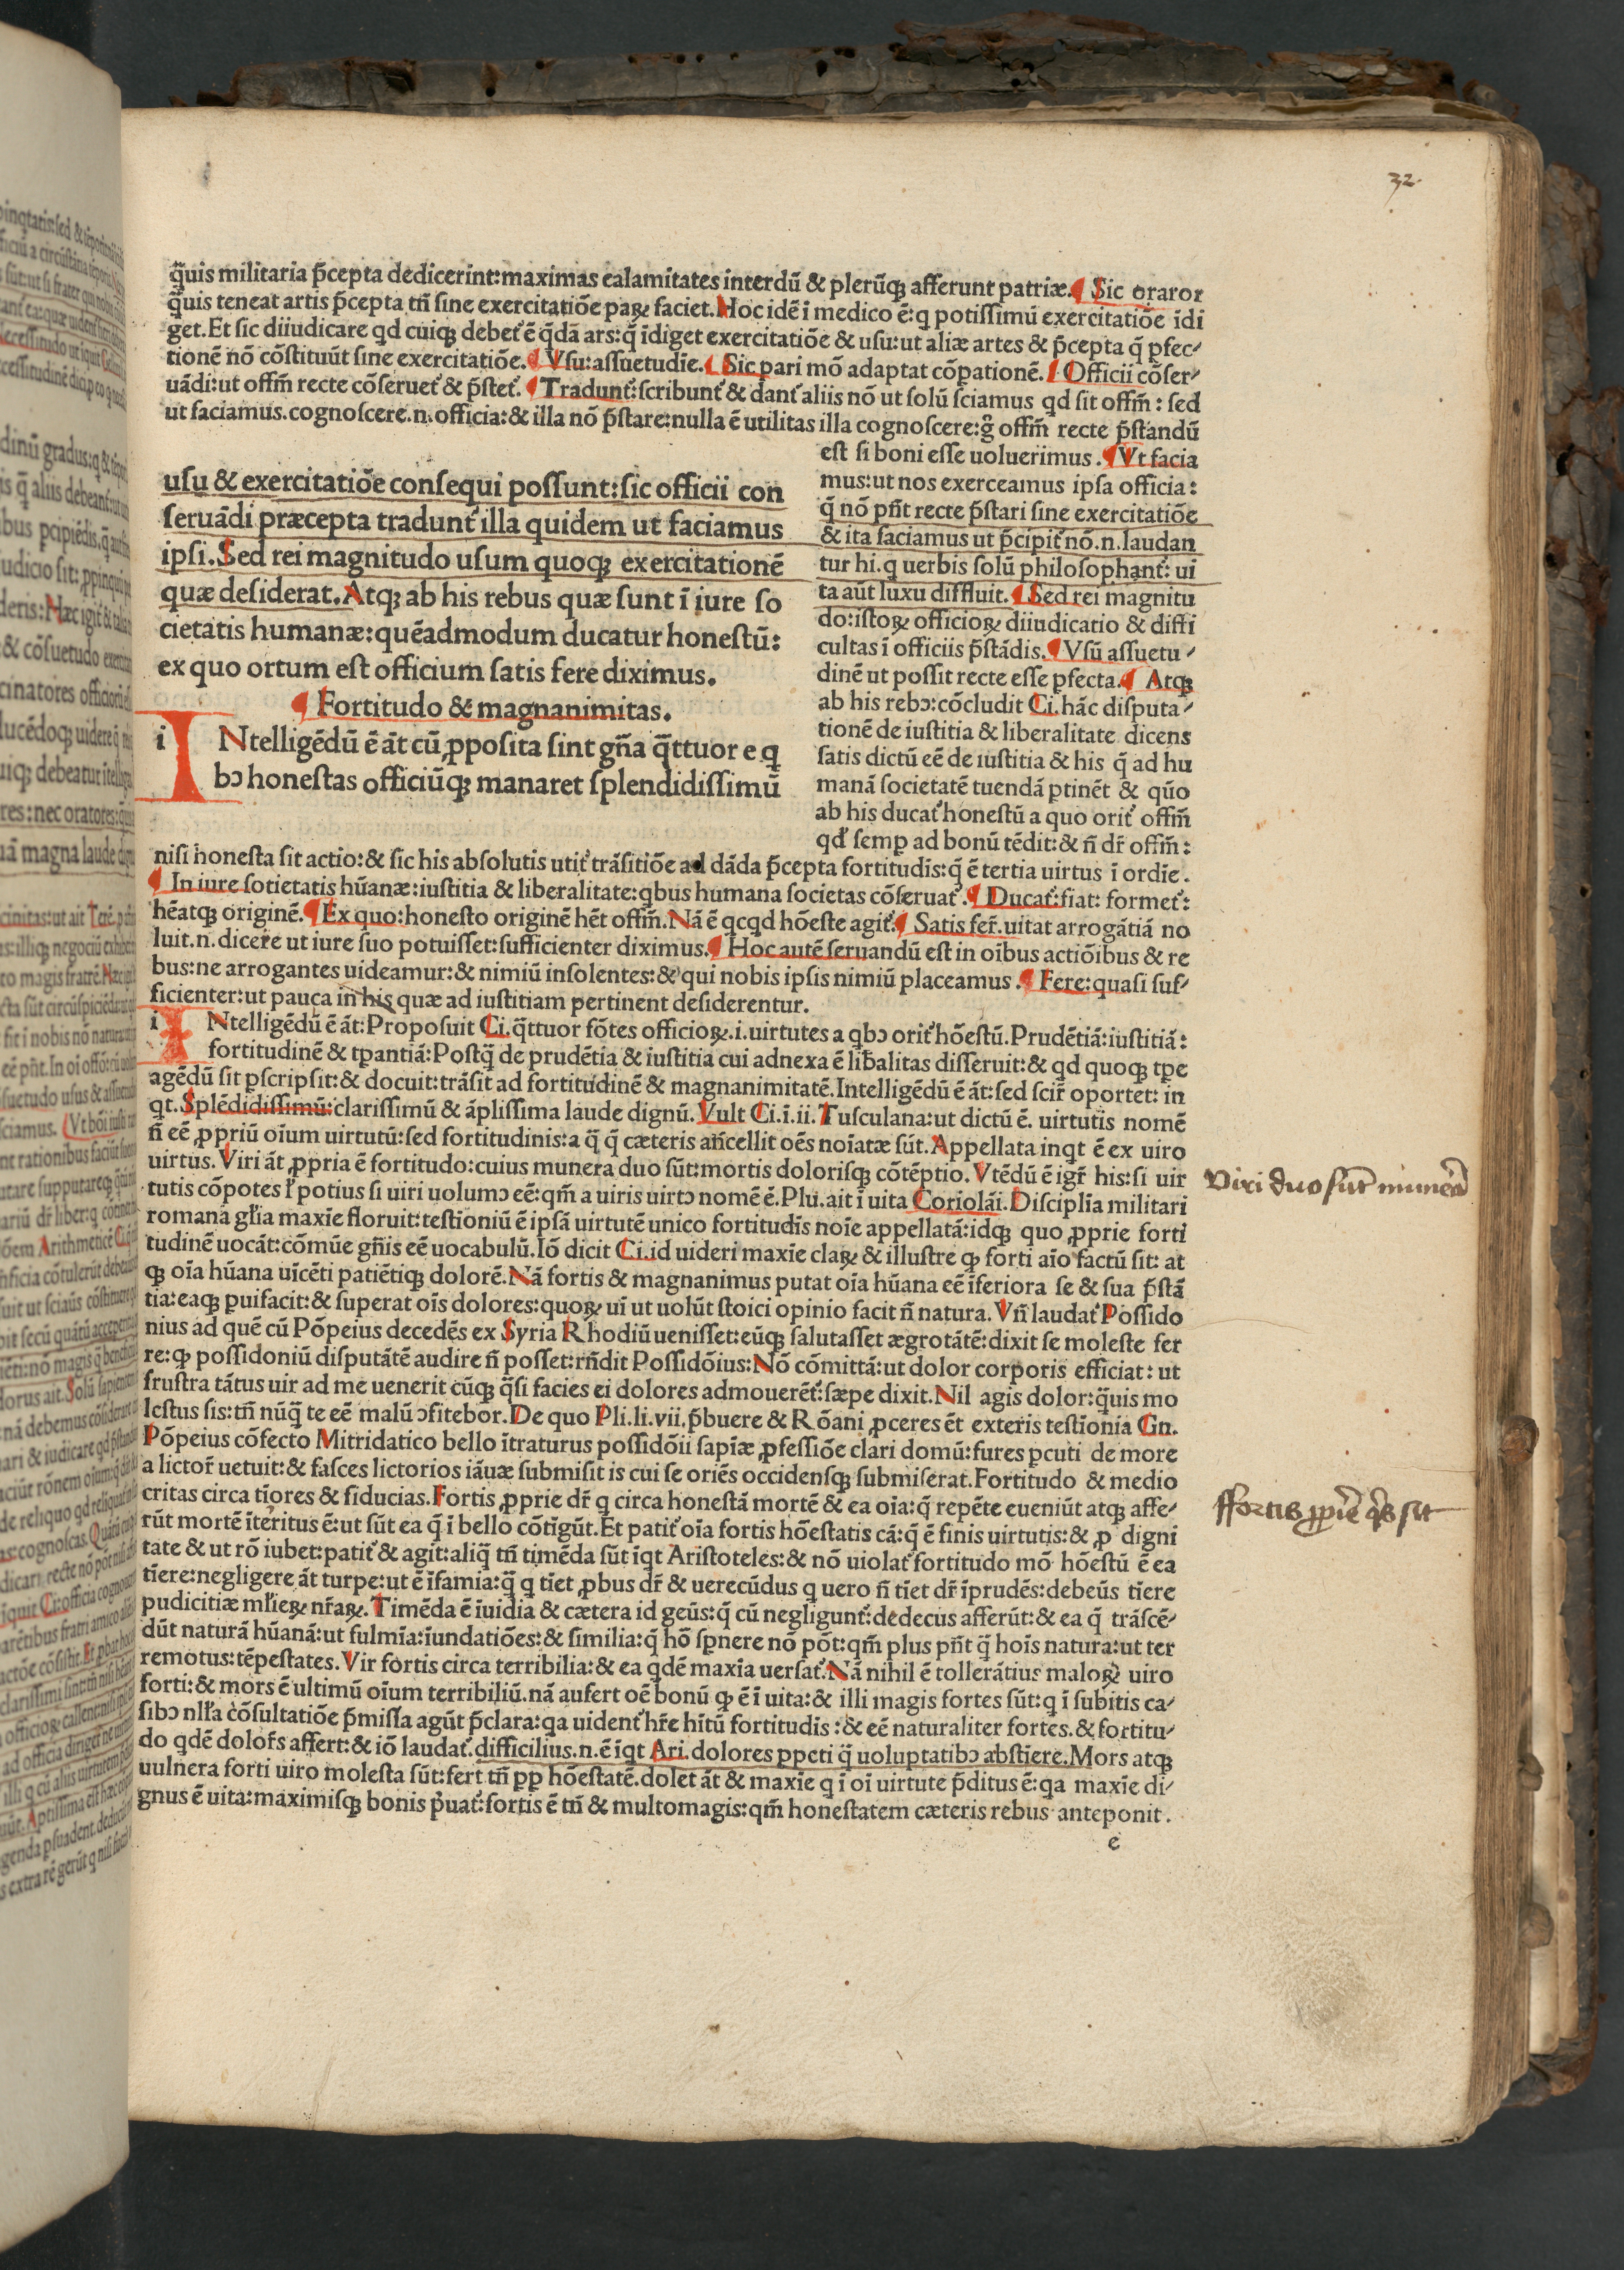 32.
q̈uis militaria p̄cepta dedicerint:maximas calamitates interdū & plerūqꝫ afferunt patriæ.¶ Sic orator
q̈uis teneat artis p̄cepta tn̄ sine exercitatiōe paꝝ faciet.Hoc idē ī medico ē:q potissimū exercitatiōe īdi
get.Et sic diiudicare qd cuiqꝫ debet̛ ē q̄dā ars:q̄ īdiget exercitatiōe & usu:ut aliæ artes & p̄cepta q̄ ꝑfec⸗
tionē nō cōstituūt sine exercitatiōe.¶ Vsu:assuetudīe.¶ Sic pari mō adaptat cōpationē.¶ Officii cōser⸗
uādi:ut offm̄ recte cōseruet̛ & p̄stet̛.¶ Tradunt̛:scribunt̛ & dant̛ aliis nō ut solū sciamus qd sit offm̄: sed
ut faciamus.cognoscere.n.officia:& illa nō p̄stare:nulla ē utilitas illa cognoscere:g̊ offm̄ recte p̄standū
est si boni esse uoluerimus.¶ Vt facia
mus:ut nos exerceamus ipsa officia:
q̄ nō pn̄t recte p̄stari sine exercitatiōe
& ita faciamus ut p̄cipit̛ nō.n.laudan
tur hi.q uerbis solū philosophant̛: ui
ta aūt luxu diffluit.¶ Sed rei magnitu
do:istoꝝ officioꝝ diiudicatio & diffi
cultas ī officiis p̄stādis.¶ Vsū assuetu⸗
dinē ut possit recte esse ꝑfecta.¶ Atqꝫ
ab his rebꝰ:cōcludit Ci.hāc disputa⸗
tionē de iustitia & liberalitate dicens
satis dictū eē de iustitia & his q̄ ad hu
manā societatē tuendā ꝑtinēt & qūo
ab his ducat̛ honestū a quo orit̛ offm̄
qd̛ semꝑ ad bonū tēdit:& n̄ dr̄ offm̄:
usu & exercitatiōe consequi possunt:sic officii con
seruādi præcepta tradunt̛ illa quidem ut faciamus
ipsi.Sed rei magnitudo usum quoqꝫ exercitationē
quæ desiderat.Atqꝫ ab his rebus quæ sunt ī iure so
cietatis humanæ:quēadmodum ducatur honestū:
ex quo ortum est officium satis fere diximus.
¶ Fortitudo & magnanimitas.
i Ntelligēdū ē āt cū ꝓposita sint gn̄a q̄ttuor e q
bꝰ honestas officiūqꝫ manaret splendidissimū
nisi honesta sit actio:& sic his absolutis utit̛ trāsitiōe ad dāda p̄cepta fortitudīs:q̄ ē tertia uirtus ī ordīe.
¶ In iure sotietatis hūanæ:iustitia & liberalitate:qbus humana societas cōseruat̛.¶ Ducat̛:fiat: formet̛:
hēatqꝫ originē.¶ Ex quo:honesto originē hēt offm̄.Nā ē qcqd hōeste agit̛.¶ Satis fer̄.uitat arrogātiā no
luit.n.dicere ut iure suo potuisset:sufficienter diximus.¶ Hoc autē seruandū est in oībus actiōibus & re
bus:ne arrogantes uideamur:& nimiū insolentes:& qui nobis ipsis nimiū placeamus.¶ Fere:quasi suf⸗
ficienter:ut pauca in his quæ ad iustitiam pertinent desiderentur.
i Ntelligēdū ē āt:Proposuit Ci.q̄ttuor fōtes officioꝝ.i.uirtutes a qbꝰ orit̛ hōestū.Prudētiā:iustitiā:
fortitudinē & tꝑantiā:Postq̄ de prudētia & iustitia cui adnexa ē lib̄alitas disseruit:& qd quoqꝫ tꝑe
agēdū sit ꝑscripsit:& docuit:trāsit ad fortitudinē & magnanimitatē.Intelligēdū ē āt:sed scir̄ oportet: in
qt.Splēdidissimū:clarissimū & āplissima laude dignū.Vult Ci.ī.ii.Tusculana:ut dictū ē. uirtutis nomē
n̄ eē ꝓpriū oīum uirtutū:sed fortitudinis:a q̈ q̄ cæteris an̄cellit oēs noīatæ sūt.Appellata inqt ē ex uiro
uirtus.Viri āt ꝓpria ē fortitudo:cuius munera duo sūt:mortis dolorisqꝫ cōtēptio.Vtēdū ē igr̄ his:si uir
tutis cōpotes ł potius si uiri uolumꝰ eē:qm̄ a uiris uirtꝰ nomē ē.Plu.ait ī uita Coriolāi.Disciplīa militari
romana gl̄ia maxīe floruit:testioniū ē ipsā uirtutē unico fortitudīs noīe appellatā:idqꝫ quo ꝓprie forti
tudinē uocāt:cōmūe gn̄is eē uocabulū.Iō dicit Ci.id uideri maxīe claꝝ & illustre ꝙ forti aīo factū sit: at
qꝫ oīa hūana uīcēti patiētiqꝫ dolorē.Nā fortis & magnanimus putat oīa hūana eē īferiora se & sua p̄stā
tia:eaqꝫ ꝑuifacit:& superat oīs dolores:quoꝝ uī ut uolūt stoici opinio facit n̄ natura.Vn̄ laudat̛ Possido
nius ad quē cū Pōpeius decedēs ex Syria Rhodiū uenisset:eūqꝫ salutasset ægrotātē:dixit se moleste fer
re:ꝙ possidoniū disputātē audire n̄ posset:rn̄dit Possidōius:Nō cōmittā:ut dolor corporis efficiat: ut
frustra tātus uir ad me uenerit cūqꝫ q̈si facies ei dolores admouerēt̛:sæpe dixit.Nil agis dolor:q̈uis mo
lestus sis:tn̄ nūq̄ te eē malū ɔfitebor.De quo Pli.li.vii.p̄buere & Rōani ꝓceres ēt exteris testīonia Gn.
Pōpeius cōfecto Mitridatico bello ītraturus possidōii sapīæ ꝓfessiōe clari domū:fures ꝑcuti de more
a lictor̄ uetuit:& fasces lictorios iāuæ submisit is cui se oriēs occidensqꝫ submiserat.Fortitudo & medio
critas circa tīores & fiducias.Fortis ꝓprie dr̄ q circa honestā mortē & ea oīa:q̄ repēte eueniūt atqꝫ affe⸗
rūt mortē īteritus ē:ut sūt ea q̄ ī bello cōtīgūt.Et patit̛ oīa fortis hōestatis cā:q̄ ē finis uirtutis:& ꝓ digni
tate & ut rō iubet:patit̛ & agit:aliq̄ tn̄ timēda sūt īqt Aristoteles:& nō uiolat̛ fortitudo mō hōestū ē ea
tīere:negligere āt turpe:ut ē īfamia:q̄ q tīet ꝓbus dr̄ & uerecūdus q uero n̄ tīet dr̄ īprudēs:debeūs tīere
pudicitiæ ml̄ieꝝ nr̄aꝝ.Timēda ē īuidia & cætera id geūs:q̄ cū negligunt̛:dedecus afferūt:& ea q̄ trāscē⸗
dūt naturā hūanā:ut fulmīa:īundatiōes:& similia:q̄ hō spnere nō pōt:qm̄ plus pn̄t q̄ hoīs natura:ut ter
remotus:tēpestates.Vir fortis circa terribilia:& ea qdē maxīa uersat̛.Nā nihil ē tollerātius maloꝝ uiro
forti:& mors ē ultimū oīum terribiliū.nā aufert oē bonū ꝙ ē ī uita:& illi magis fortes sūt:q ī subitis ca⸗
sibꝰ nl̄la cōsultatiōe p̄missa agūt p̄clara:qa uident̛ hr̄e hītū fortitudīs:& eē naturaliter fortes.& fortitu⸗
do qdē dolor̄s affert:& iō laudat̛.difficilius.n.ē īqt Ari.dolores ꝑpeti q̈ uoluptatibꝰ abstīere.Mors atqꝫ
uulnera forti uiro molesta sūt:fert tn̄ ꝑp hōestatē.dolet āt & maxīe q ī oī uirtute p̄ditus ē:qa maxīe di⸗
gnus ē uita:maximisqꝫ bonis p̄uat̛:fortis ē tn̄ & multomagis:qm̄ honestatem cæteris rebus anteponit.
e
Viri duo sūt munera
ffortis ꝓprie q̄s sit